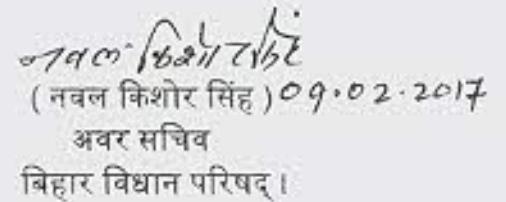 नवल किशोर सिंह
( नवल किशोर सिंह ) 09.02.2017
अवर सचिव
बिहार विधान परिषद् ।